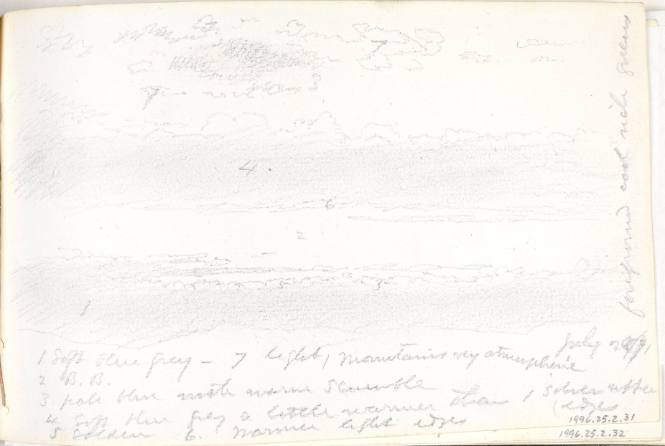 7
4
6
2
3
1
foreground cool rich greens
July
1 Soft blue grey — 7 light, mountains very atmospheric
2 B.B.
3 pale blue with warm scumble
4 Soft blue grey a little warmer than 1 silver upper
(edges
5 Golden 6. Warmer light edges
1996.25.2.31
1996.25.2.32